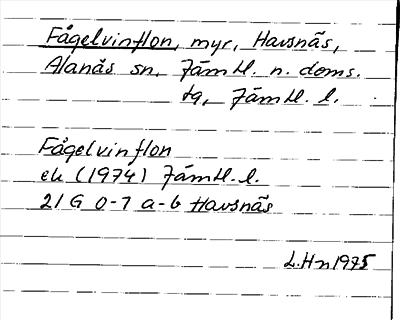 Fågelvinflon, myr, Havsnäs,
Alanäs sn, Jämtl. n. doms.
tg, Jämtl. l.
Fågelvinflon
ek (1974) Jämtl. l.
21 G 0-1 a-b Havsnäs
L.Hn 1975